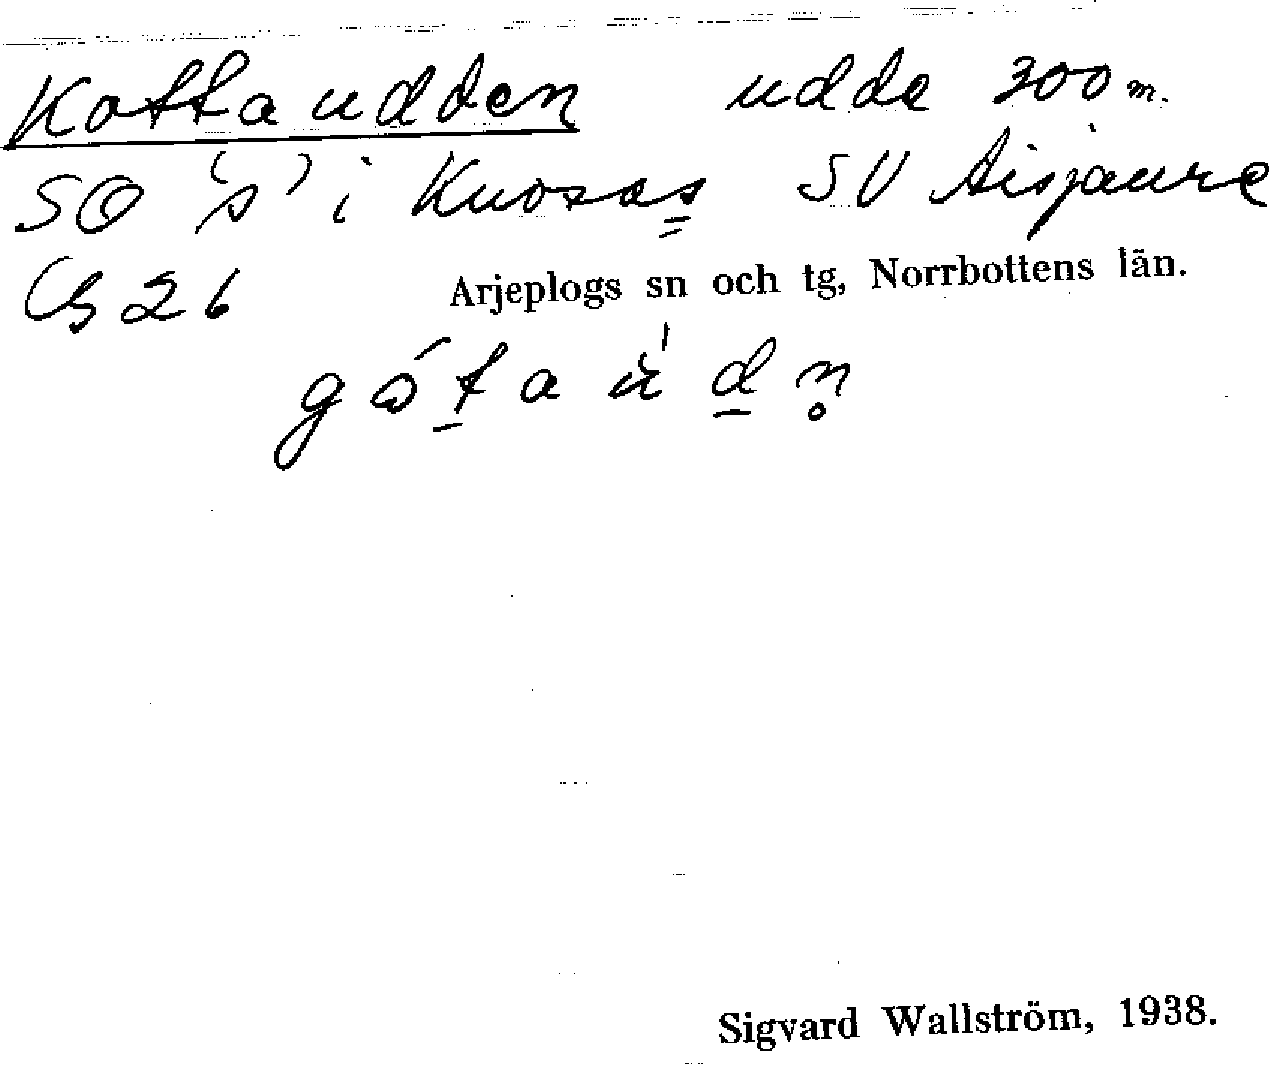 Kottaudden udde 300 m.
SO 's' i Kuosas SV Aisjaure
G 26
Arjeplogs sn och tg, Norrbottens län.
Sigvard Wallström, 1938.